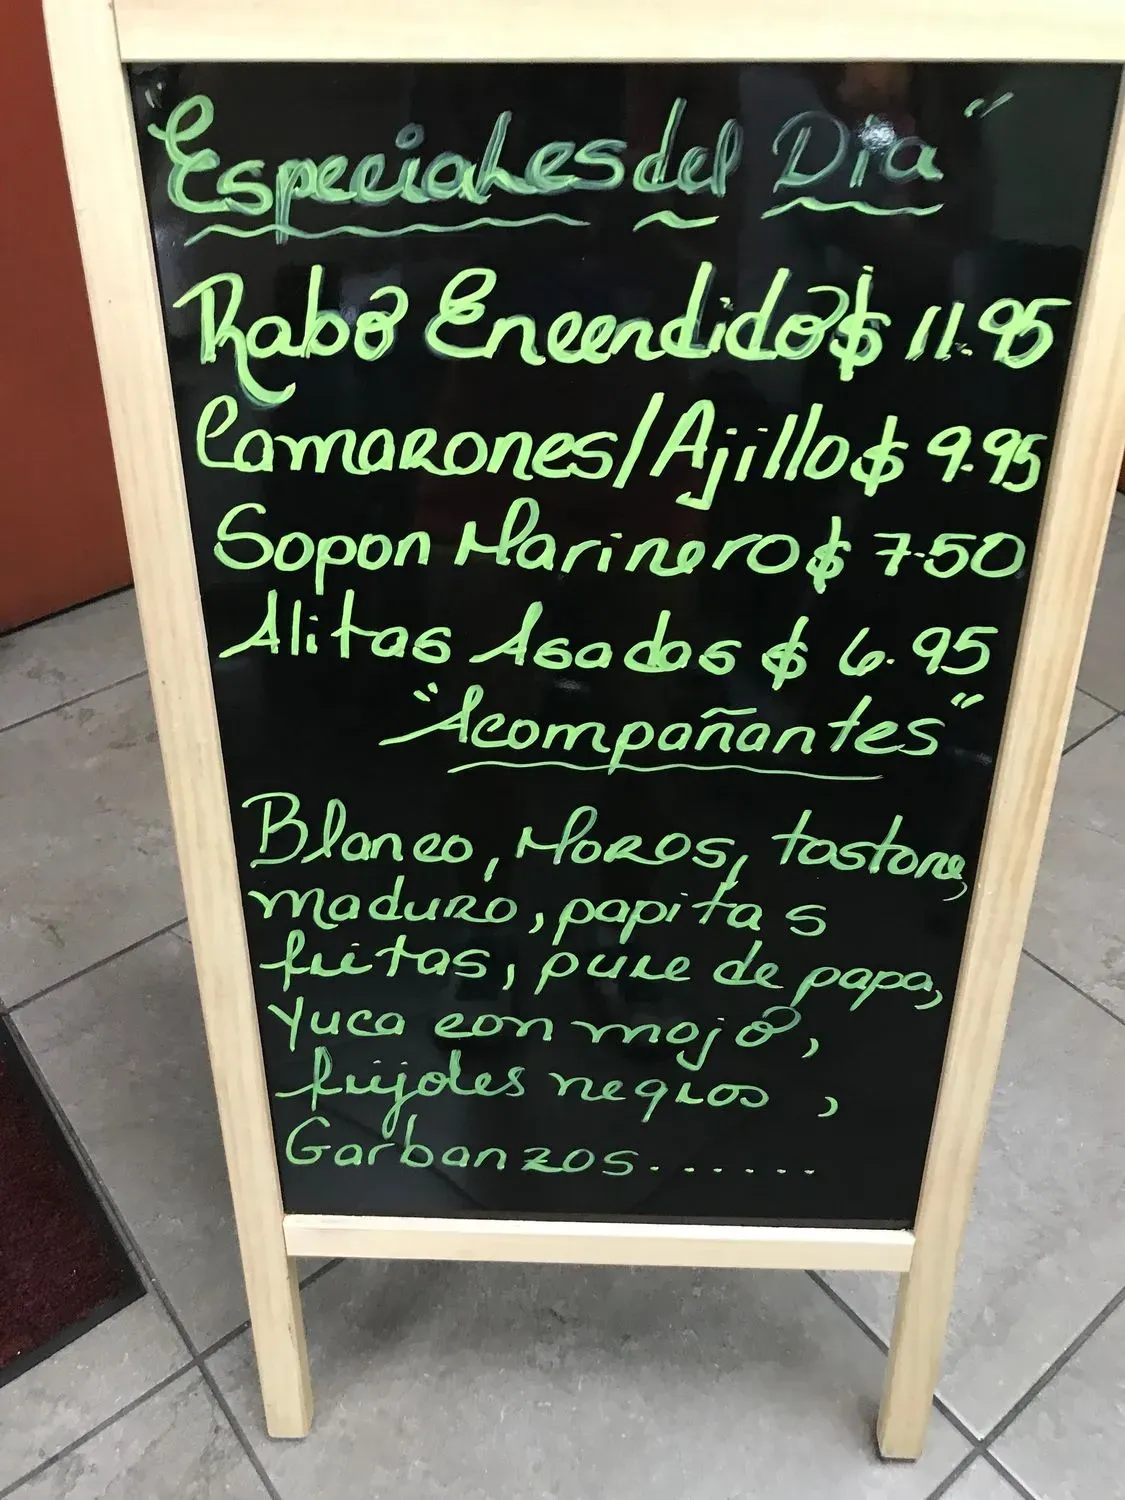 "Especiales del Dia"
Rabo Encendido $ 11.95
Camarones/Ajillo $ 9.95
Sopon Marinero $ 7.50
Alitas Asadas $ 6.95
"Acompañantes"
Blanco, Moros, tostone,
maduro, papitas
fritas, pure de papa,
Yuca con mojo,
frijoles negros ,
Garbanzos.......